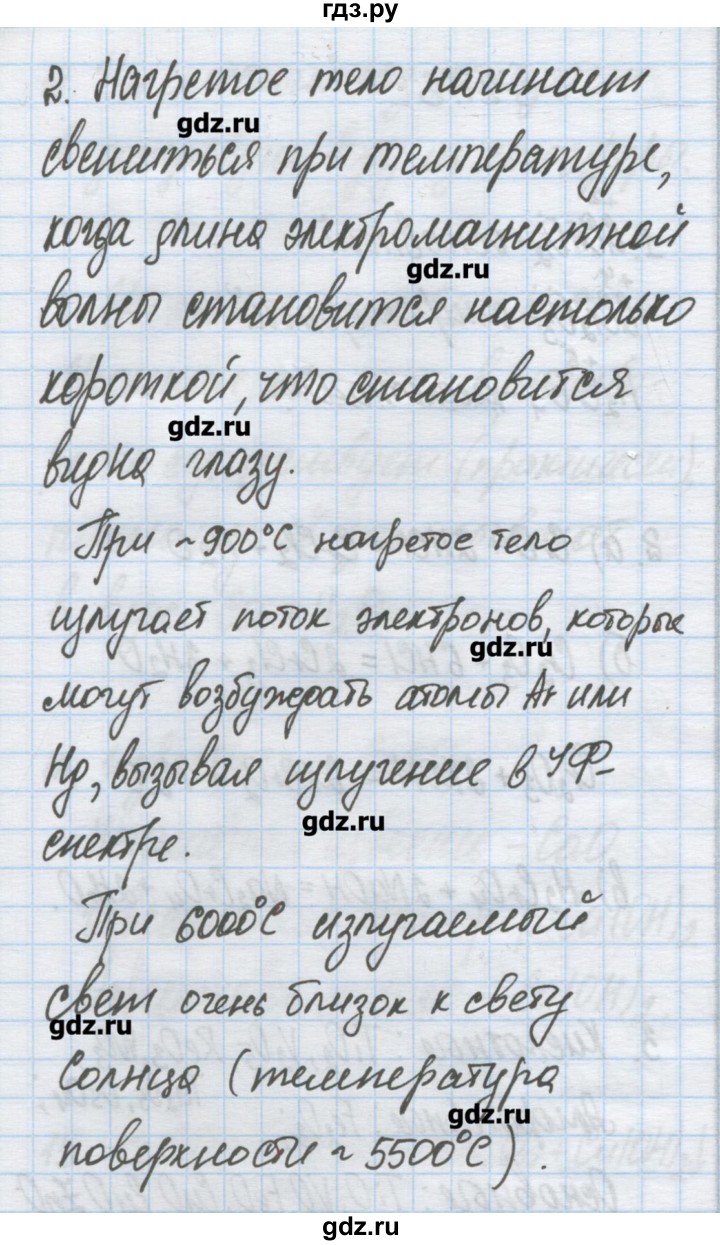 гдз.ру
2. Нагретое тело начинает
gdz.ru
светиться при температуре,
когда длина электромагнитной
gdz.ru
волны становится настолько
короткой, что становится
gdz.ru
видна глазу.
При ~900°С нагретое тело
излучает поток электронов, которые
gdz.ru
могут возбуждать атомы Ar или
Hg, вызывая излучение в УФ-
gdz.ru
спектре.
При 6000°С излучаемый
свет очень близок к свету
gdz.ru
Солнца (температура
gdz.ru
поверхности ~ 5500°С).
gdz.ru